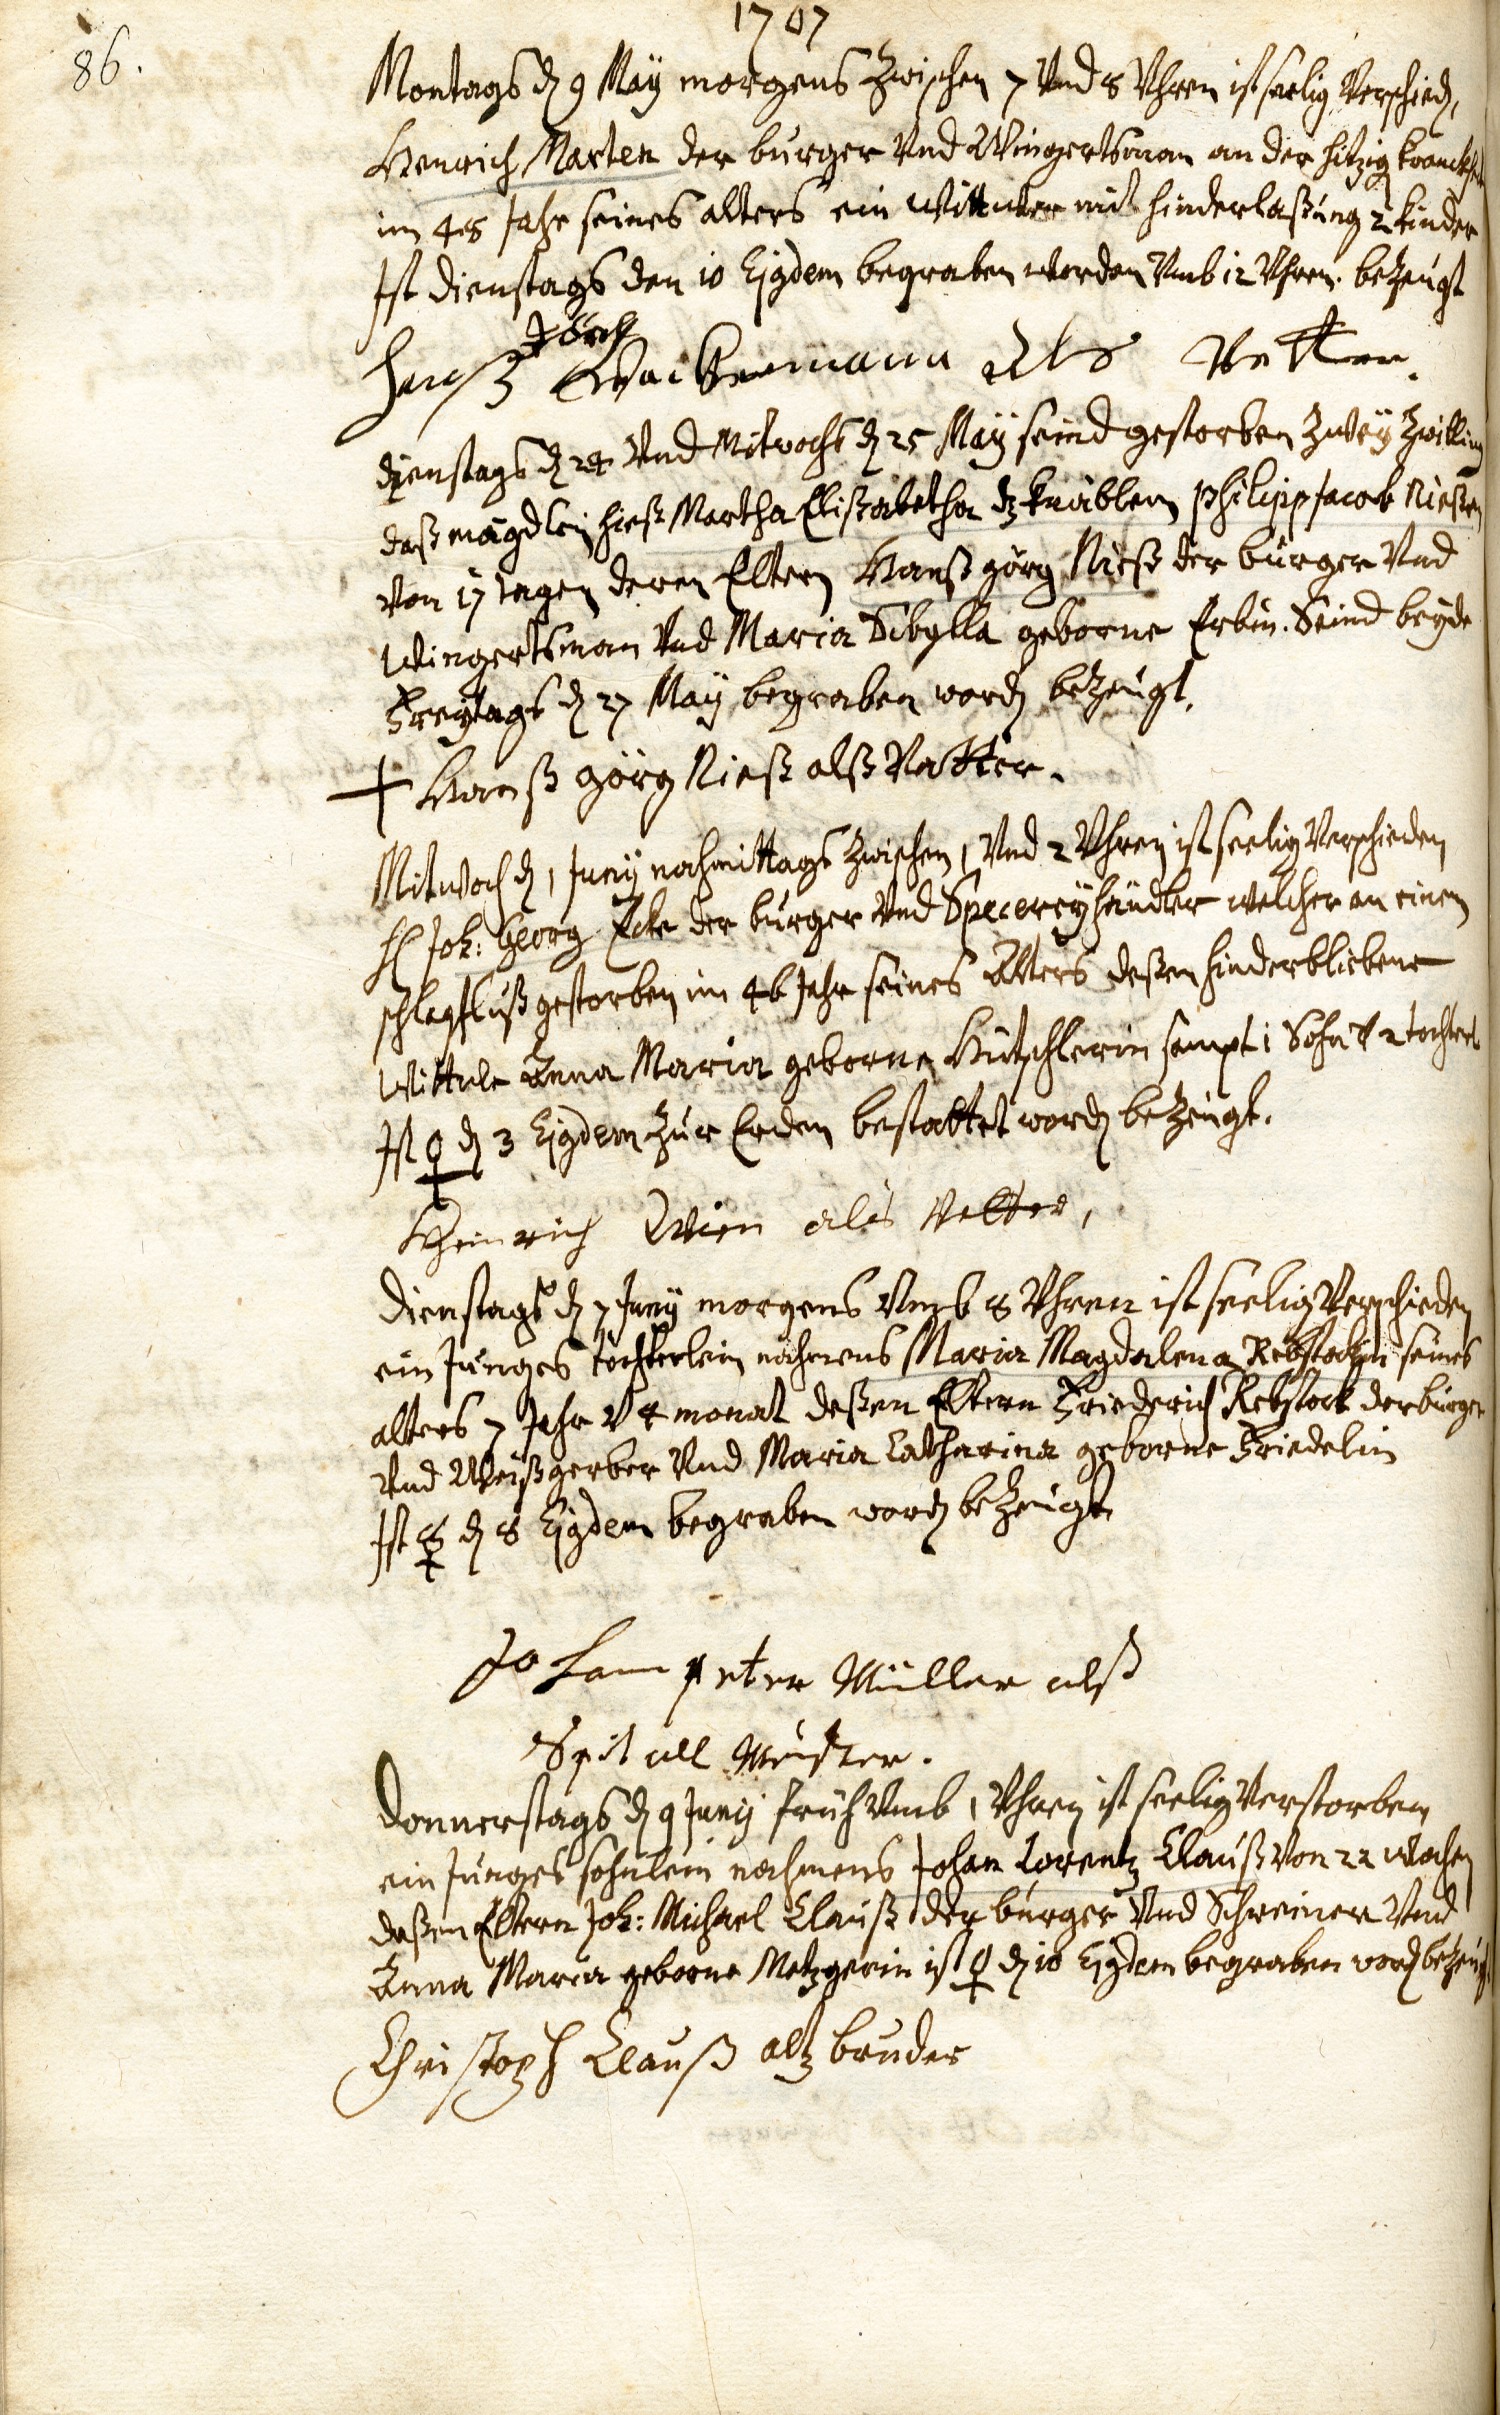 1707
86.
Montags d 9 Maÿ morgens zwischen 7 Vnd 8 Vhren ist seelig Verschied,
Henrich Marten der burger Vnd Wingertsman an der hitzig kranckheit
im 48 Jahr seines alters ein Wittwer mit hinderlaßung 2 kinder
Ist dienstags den 10 Ejgdem begraben worden Vmb 12 Vhren. bezeugt
Jörch
Hanß Wackermann als Vetter.
dienstags d 24 Vnd Mitwochs d 25 Maÿ seind gestorben zweÿ Zwilling
daß mägdlein hieß Martha Elisabetha dz knäblein Philipp Jacob Nießen
von 17 tagen deren Eltern Hanß Görg Nieß der burger Vnd
Wingertsman Vnd Maria Sibylla geborne Erbin. Seind beÿde
Freytags d 27 Maÿ begraben word bezeugt.
+ Hanß Görg Nieß alß Vatter.
Mitwoch d 1 Junÿ nachmittags zwischen 1 Vnd 2 Vhren ist seelig Verschieden
H Joh: Georg Ecke der burger Vnd Specereÿhändler welcher an einem
schlagfluß gestorben im 46 Jahr seines Alters deßen hinderbliebene
Wittwe Anna Maria geborne Hutschlerin sampt 1 Sohn V 2 tochter
Ist ♀ d 3 Ejgdem zur Erden bestattet word bezeugt.
Heinrich Wien als Vetter,
dienstags d 7 Junÿ morgens Vmb 8 Vhren ist seelig Verschieden
ein Junges töchterlein nahmens Maria Magdalena Rebstockin seines
alters 7 Jahr V 4 monat deßen Eltern Friederich Rebstock der burger
Vnd Weißgerber Vnd Maria Catharina geborne Friedelin
Ist ☿ d 8 Ejgdem begraben word bezeugt
Johann peter Müller alß
Spitall Meister.
donnerstags d 9 Junÿ früh Vmb 1 Vhren ist seelig Verstorben
ein Junges söhnlein nahmens Johan Lorentz Clauß Von 22 wochen
deßen Eltern Joh: Michael Clauß der burger Vnd Schreiner Vnd
Anna Maria geborne Metzgerin ist ♀ d 10 Ejgdem begraben word bezeugt.
Christoph Clauß altz bruder